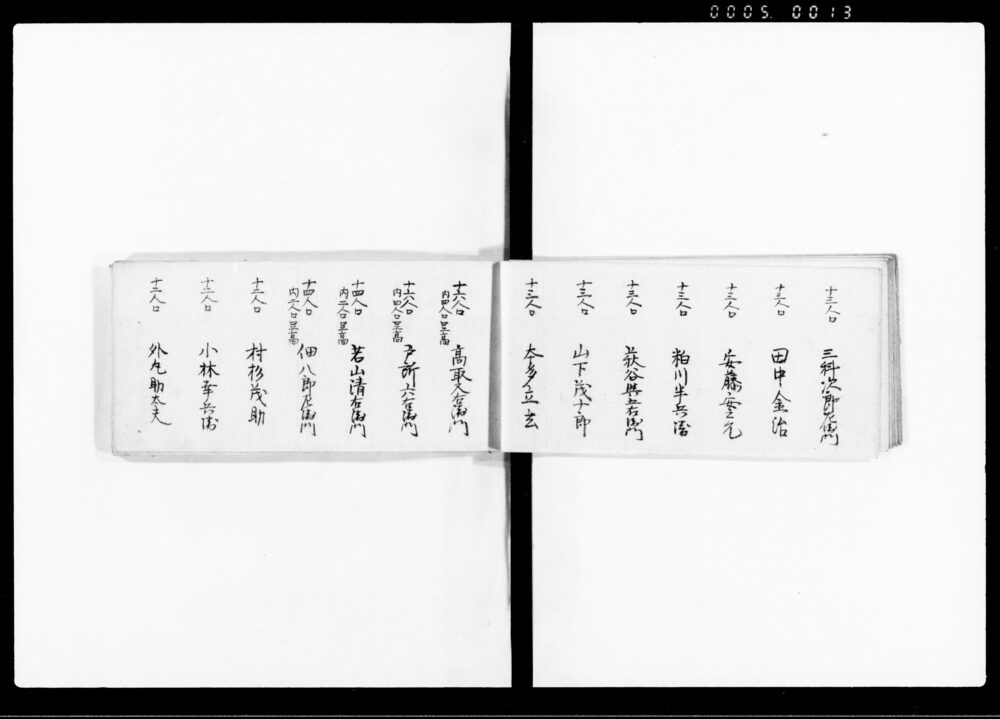 0005. 0013
十三人口 三科次郎左衛門
十三人口 田中金治
十三人口 安藤安元
十三人口 粕川半兵衛
十三人口 荻谷与五右衛門
十三人口 山下茂十郎
十三人口 本多立玄
十六人口 内四人口足高 高取又右衛門
十六人口 内四人口足高 戸所六右衛門
十四人口 内二人口足高 若山清右衛門
十四人口 内二人口足高 佃八郎左衛門
十二人口 村杉茂助
十二人口 小林幸兵衛
十二人口 外丸助太夫